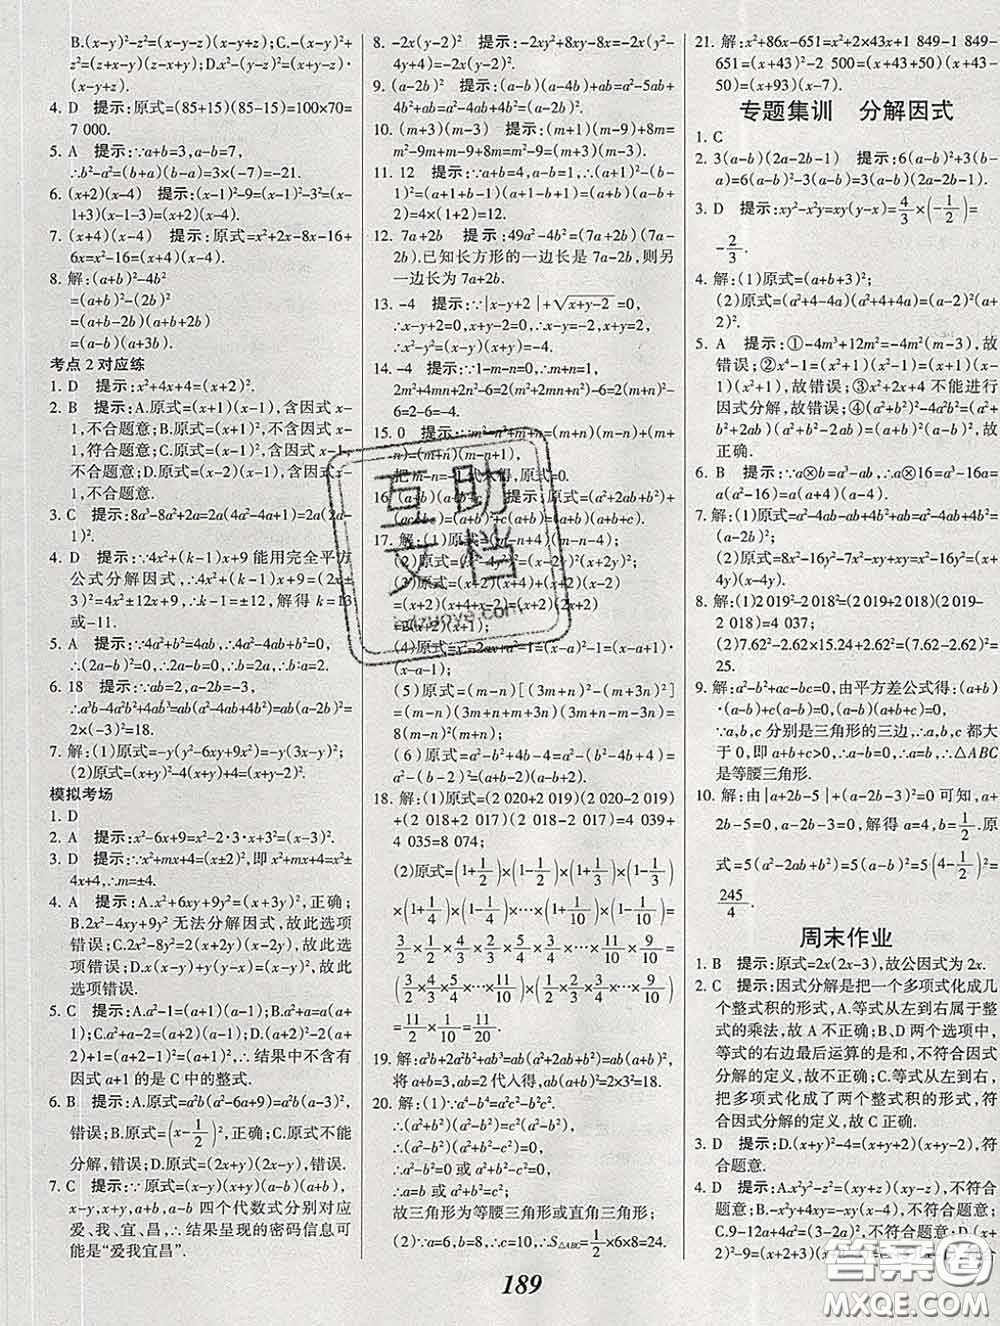 B.(x-y)²-z²=(x-y-z)(x-y+z);C.-(x-y)²+
z²=(z+x-y)(z-x+y);D.x²-(y-z)²=(x+y-z)·
(x-y+z).
4. D 提示:原式=(85+15)(85-15)=100×70=
7 000.
5. A 提示:∵a+b=3,a-b=7,
∴b²-a²=(b+a)(b-a)=3×(-7)=-21.
6. (x+2)(x-4) 提示:(x-1)²-9=(x-1)²-3²=(x-
1+3)(x-1-3)=(x+2)(x-4).
7. (x+4)(x-4) 提示:原式=x²+2x-8x-16+
6x=x²-16=(x+4)(x-4).
8. 解:(a+b)²-4b²
=(a+b)²-(2b)²
=(a+b-2b)(a+b+2b)
=(a-b)(a+3b)
考点2对应练
1. D 提示:x²+4x+4=(x+2)².
2. B 提示:A.原式=(x+1)(x-1),含因式x-
1,不合题意;B.原式=(x+1)²,不含因式x-
1,符合题意;C.原式=(x-1)²,含因式x-1,
不合题意;D.原式=(x-1)(x+2),含因式x-
1,不合题意.
3. C 提示:8a³-8a²+2a=2a(4a²-4a+1)=2a(2a-
1)².
4. D 提示:∵4x²+(k-1)x+9能用完全平方
公式分解因式,∴4x²+(k-1)x+9=(2x±
3)²=4x²±12x+9,∴k-1=±12,解得k=13
或-11.
5. A 提示:∵4a²+b²=4ab,∴4a²-4ab+b²=0,
∴(2a-b)²=0,∴2a-b=0.
6. 18 提示:∵ab=2,a-2b=-3,
∴a³b-4a²b²+4ab³=ab(a²-4ab+4b²)=ab(a-
2b)²=2×(-3)²=18.
7. 解:(1)原式=-y(y²-6xy+9x²)=-y(3x-y)²;
(2)原式=(x+y)²-4(x+y)+4=(x+y-2)².
模拟考场
1. D
2. A 提示:x²-6x+9=x²-2·3·x+3²=(x-3)².
3. D 提示:∵x²+mx+4=(x±2)²,即x²+mx+4=x²±
4x+4,∴m=±4.
4. A 提示:A.x²+6xy+9y²=(x+3y)²,正确;
B.2x²-4xy+9y²无法分解因式,故此选项
错误;C.2x²-8y²=2(x+2y)(x-2y),故此
选项错误;D.x(x-y)+y(x-y)=(x-y)(x+y),故
此选项错误.
5. C 提示:A.a²-1=(a+1)(a-1);B.a²+a=a(a+
1);C.a²+a-2=(a+2)(a-1);D.(a+2)²-2(a+
2)+1=(a+2-1)²=(a+1)²,∴结果中不含有
因式a+1的是C中的整式.
6. B 提示:A.原式=a²b(a²-6a+9)=a²b(a-3)²,
错误;B.原式=(x-1/2)²,正确;C.原式不能
分解,错误;D.原式=(2x+y)(2x-y),错误.
7. C 提示:∵原式=(x-y)(x+y)(a-b)(a+b),
x-y,x+y,a+b,a-b四个代数式分别对应
爱、我、宜、昌,∴结果呈现的密码信息可
能是“爱我宜昌”.
8. -2x(y-2)² 提示:-2xy²+8xy-8x=-2x(y²-
4y+4)=-2x(y-2)².
9. (a-2b)² 提示:(a-b)(a-4b)+ab=a²-5ab+
4b²+ab=a²-4ab+4b²=(a-2b)².
10. (m+3)(m-3) 提示:(m+1)(m-9)+8m=
m²-9m+m-9+8m=m²-9=(m+3)(m-3).
11. 12 提示:∵a+b=4,a-b=1,∴(a+1)²-
(b-1)²=(a+1+b-1)(a+1-b+1)=(a+b)(a-b+
2)=4×(1+2)=12.
12. 7a+2b 提示:49a²-4b²=(7a+2b)(7a-
2b).已知长方形的一边长为7a-2b,则另
一边长为7a+2b.
13. -4 提示:∵|x-y+2|+√(x+y-2)=0,
∴x-y+2=0,x+y-2=0,∴x-y=-2,x+y=2,
∴x²-y²=(x-y)(x+y)=-4.
14. -4 提示:∵1-m=n,∴m+n=1,
2m²+4mn+2n²-6=2(m²+2mn+n²)-6=2(m+n)²-
6=2-6=-4.
15. 0 提示:m²-n²+m+n=(m+n)(m-n)+(m+n)=
(m+n)(m-n+1),
把m-n=-1代入得,原式=0.
16. (a+b)(a+b+c) 提示:原式=(a²+2ab+b²)+
(ac+bc)=(a+b)²+c(a+b)=(a+b)(a+b+c).
17. 解:(1)原式=(m-n)(m-n-4);
(2)原式=(x+2y)²;
(3)原式=(x+2)(x+4)+(x+2)(x-2)
=(x+2)(x+4+x-2)=(x+2)(2x+2)
=2(x+2)(x+1);
(4)原式=x²-2ax+a²-1=(x-a)²-1=(x-a+1)·
(x-a-1);
(5)原式=(m-n)[(3m+n)²-(m+3n)²]
=(m-n)(3m+n+m+3n)(3m+n-m-3n)=
8(m-n)²(m+n);
(6)原式=a²-b²+4b-4=a²-(b²-4b+4)=
a²-(b-2)²=(a-b+2)(a+b-2).
18. 解:(1)原式=(2 020+2 019)(2 020-2 019)
+(2 018+2 017)(2 018-2 017)=4 039+
4 035=8 074;
(2)原式=(1+1/2)×(1-1/2)×(1+1/3)×(1-1/3)
×(1+1/4)×(1-1/4)×…×(1+1/10)×(1-1/10)=
3/2×1/2×4/3×2/3×5/4×3/4×…×11/10×9/10=
3/2×4/3×5/4×…×11/10×1/2×2/3×3/4×…×9/10=
11/2×1/10=11/20.
19. 解:a³b+2a²b²+ab³=ab(a²+2ab+b²)=ab(a+b)²,
将a+b=3,ab=2代人得,ab(a+b)²=2×3²=18.
20. 解:(1)∵a⁴-b⁴=a²c²-b²c².
∴(a²+b²)(a²-b²)=c²(a²-b²),
∴(a²-b²)(a²+b²-c²)=0,
∴a²-b²=0或a²+b²-c²=0,
∴a=b或a²+b²=c²,
故三角形为等腰三角形或直角三角形.
(2)∵a=6,b=8,∴c=10,∴S△ABC=1/2×6×8=24.
21. 解:x²+86x-651=x²+2×43x+1 849-1 849-
651=(x+43)²-2 500=(x+43+50)(x+43-
50)=(x+93)(x-7).
专题集训 分解因式
1. C
2. 3(a-b)(2a-2b-1) 提示:6(a-b)²+3(b-
a)=6(a-b)²-3(a-b)=3(a-b)(2a-2b-1).
3. D 提示:xy²-x²y=xy(y-x)=4/3×(-1/2)=
-2/3.
4. 解:(1)原式=(a+b+3)²;
(2)原式=(a²+4-4a)(a²+4+4a)=(a-2)²(a+
2)².
5. A 提示:①-4m³+12m²=-4m²(m-3),故
错误;②x⁴-1=(x²+1)(x²-1)=(x²+1)(x+
1)(x-1),故错误;③x²+2x+4不能进行
因式分解,故错误;④(a²+b²)²-4a²b²=(a²+
b²+2ab)(a²+b²-2ab)=(a+b)²(a-b)²,故
正确.
6. B 提示:∵a⊗b=a³-ab,∴a⊗16=a³-16a=
a(a²-16)=a(a+4)(a-4).
7. 解:(1)原式=a²-ab-4ab+4b²+ab=a²-4ab+4b²=
(a-2b)²;
(2)原式=8x²-16y²-7x²-xy+xy=x²-16y²=(x+
4y)(x-4y).
8. 解:(1)2 019²-2 018²=(2 019+2 018)(2 019-
2 018)=4 037;
(2)7.62²-7.62×15.24+2.62²=(7.62-2.62)²=
25.
9. 解:a²-b²+ac-bc=0,由平方差公式得:(a+b)
·(a-b)+c(a-b)=0,∴(a-b)(a+b+c)=0.
∵a,b,c分别是三角形的三边,∴a,b,c都大
于0,即a+b+c>0,∴a-b=0,∴a=b,∴△ABC
是等腰三角形.
10. 解:由|a+2b-5|+(2b-1)²=0可知,a+
2b-5=0,2b-1=0,解得a=4,b=1/2.原
式=5(a²-2ab+b²)=5(a-b)²=5(4-1/2)²=
245/4.
周末作业
1. B 提示:原式=2x(2x-3),故公因式为2x.
2. C 提示:因式分解是把一个多项式化成几
个整式积的形式,A.等式从左到右属于整
式的乘法,故A不正确;B、D两个选项中,
等式的右边最后运算的是和,不符合因式
分解的定义,故不正确;C.等式从左到右
把多项式化成了两个整式积的形式,符
合因式分解的定义,故C正确.
3. D 提示:D.(x+y)²-4=(x+y+2)(x+y-2),符
合题意.
4. D 提示:A.x²y²-z²=(xy+z)(xy-z),不符合
题意;B.-x²y+4xy=-xy(x-4),不符合题意;
C.9-12a+4a²=(3-2a)²,不符合题意;D.(x+
2)²-9=(x+2+3)(x+2-3)
189
互助
文档
答案圈
MXQE.COM